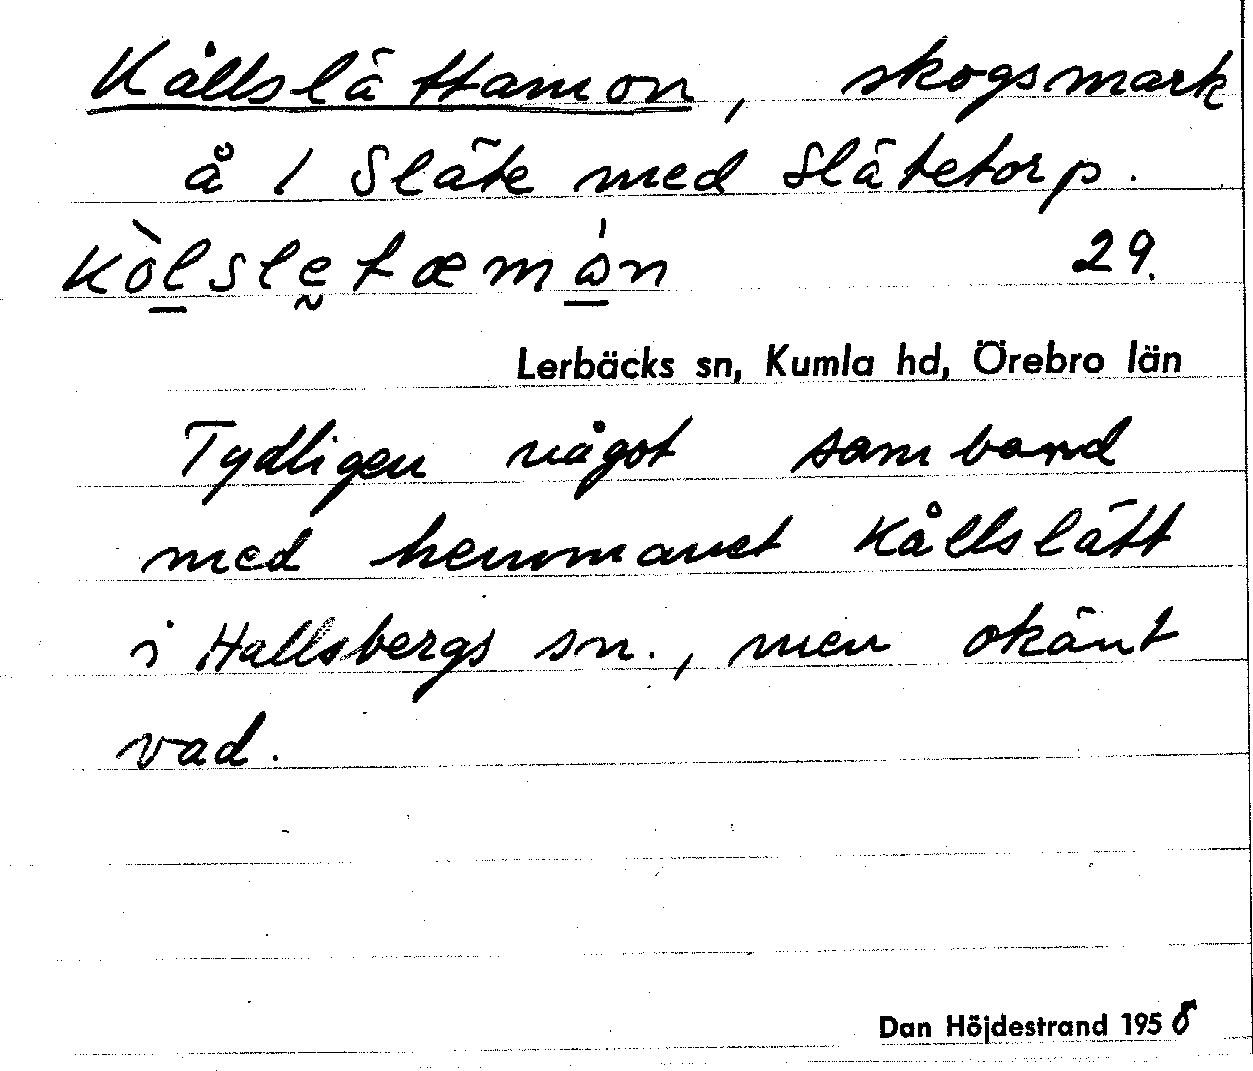 Kållslättamon, skogsmark
å 1 Släte med Slätetorp.
kò̱lslḛtæmȧ̱n 29.
Lerbäcks sn, Kumla hd, Örebro län
Tydligen något samband
med hemmanet Kållslätt
i Hallsbergs sn., men okänt
vad.
Dan Höjdestrand 1958